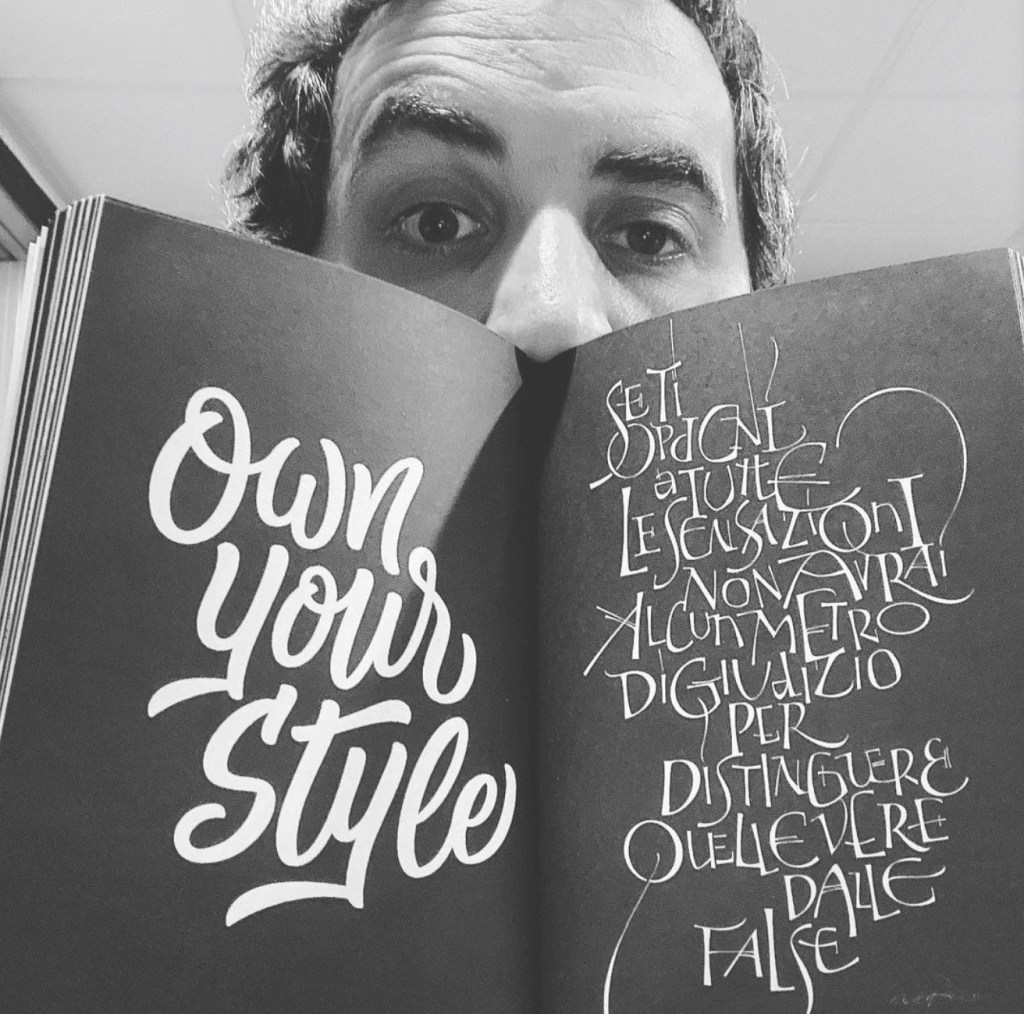 Own
your
Style
SE TI
OPPIGNI
a TUTTE
LE SENSAZIONI
NON AVRAI
ALCUN METRO
DI GIUdIZIO
PER
DISTINGUERE
QUELLE VERE
DALLE
FALSE